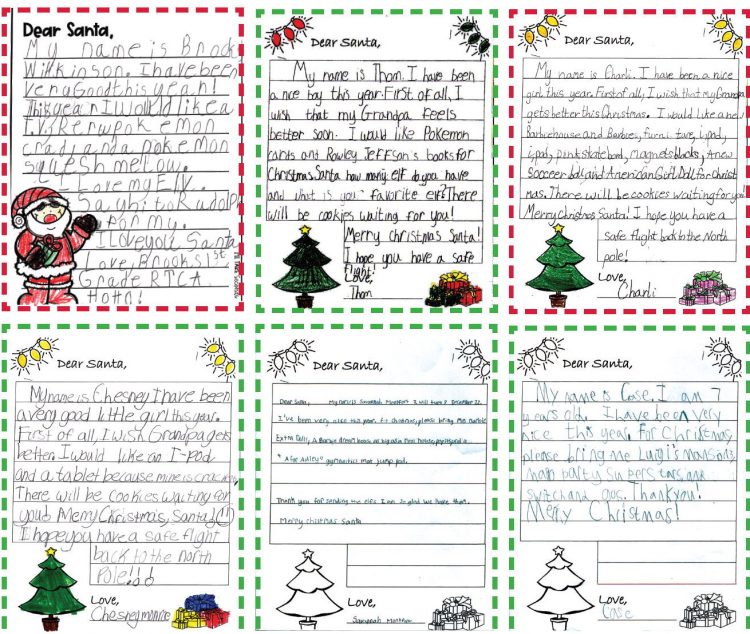 Dear Santa,
My name is Brooks
Wilkinson. I have been
very Good this year!
This year I would like a
pokemon
and a pokemon
squeshmellow.
I Love my Elf.
Say hi to Rudolph
for my.
I love you Santa
Love, Brooks 1st
Grade RTCA
HoHo!
Dear Santa,
My name is Thom. I have been
a nice boy this year. First of all, I
wish that my Grandpa feels
better soon. I would like Pokemon
cards and Rowley Jeffson's books for
Christmas. Santa how many elf do you have
and what is your favorite elf? There
will be cookies waiting for you!
Merry Christmas Santa!
I hope you have a safe
flight!
Love,
Thom
Dear Santa,
My name is Charli. I have been a nice
girl this year. First of all, I wish that my Grandpa
gets better this Christmas. I would like a new
Barbie house and Barbies, furniture, I pad,
i pod, pink skate bord, magnets blocks, A new
Soccer ball, and American Girl Doll for Christ
mas. There will be cookies waiting for you
Merry Christmas Santa! I hope you have a
safe flight back to the North
pole!
Love,
Charli
Dear Santa,
My name is Chesney I have been
a very good little girl this year.
First of all, I wish Grandpa gets
better. I would like an I-pod
and a tablet because mine is cracking.
There will be cookies waiting for
you! Merry Christmas, Santa!
I hope you have a safe flight
back to the north
Pole!!
Love,
Chesney monroe
Dear Santa,
Dear Santa, My name is Savannah I will turn 7 December 22.
I've been very nice this year. For Christmas, please bring me
Extra Fully, A Barbie dream house,
gymnastics mat jump pad.
Thank you for sending the elfs. I am so glad we have them.
Merry christmas santa
Love,
Savannah
Dear Santa,
My name is Case. I am 7
years old. I have been very
nice this year. For Christmas,
please bring me Luigi's mansion 3,
mario party Superstars and
switch and gus. Thank you!
Merry Christmas!
Love,
Case